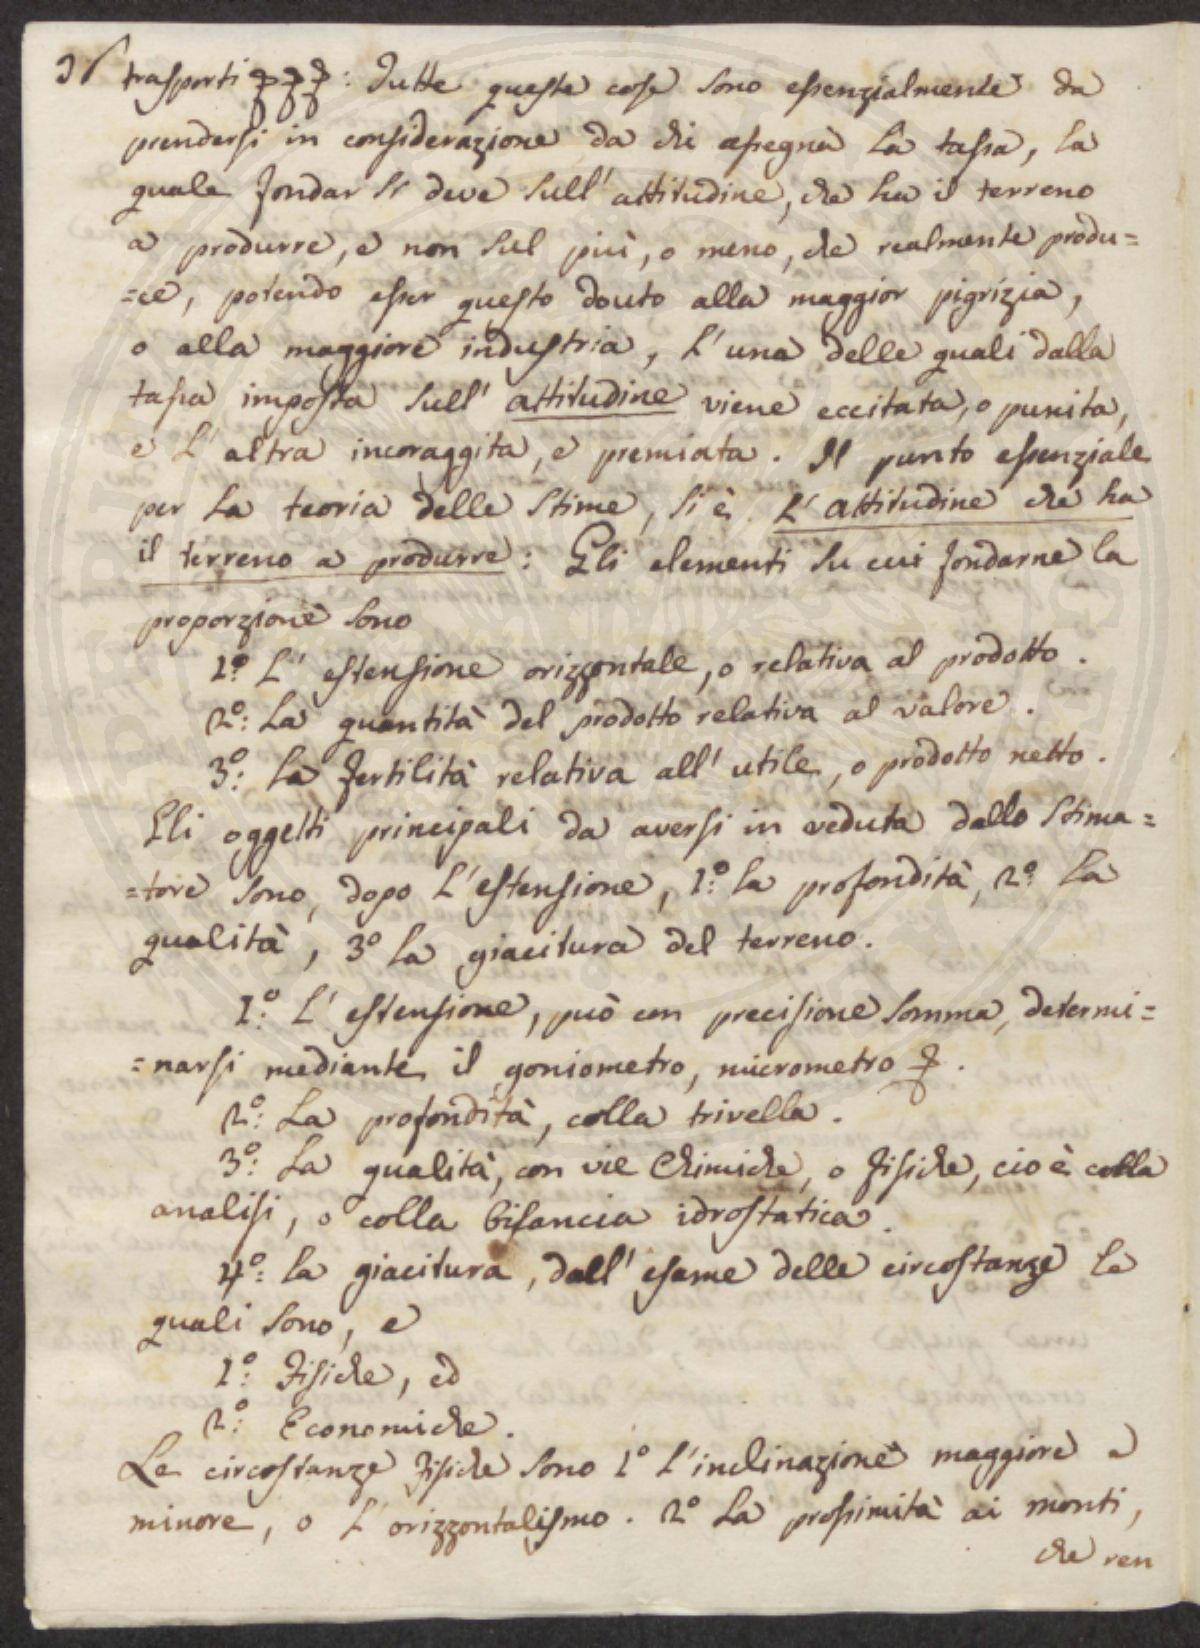 trasporti &&&: Tutte queste cose sono essenzialmente da
prendersi in considerazione da chi assegna la tassa, la
quale fondar si deve sull' attitudine, che ha il terreno
a produrre, e non sul più, o meno, che realmente produ=
=ce, potendo esser questo douto alla maggior pigrizia,
o alla maggiore industria, l' una delle quali dalla
tassa imposta sull' attitudine viene eccitata, o punita,
e l' altra incoraggita, e premiata. Il punto essenziale
per la teoria delle Stime, si è l' attitudine che ha
il terreno a produrre: Gli elementi su cui fondarne la
proporzione sono
1º: L' estensione orizzontale, o relativa al prodotto.
2º: La quantità del prodotto relativa al valore.
3º: La fertilità relativa all' utile, o prodotto netto.
Gli oggetti principali da aversi in veduta dallo Stima=
=tore sono, dopo l'estensione, 1º: la profondità, 2º: La
qualità, 3º la giacitura del terreno.
1º: L' estensione, può con precisione somma, determi=
=narsi mediante il goniometro, micrometro &.
2º: La profondità, colla trivella.
3º: La qualità, con vie Chimiche, o fisiche, cio è colla
analisi, o colla bilancia idrostatica.
4º: la giacitura, dall' esame delle circostanze le
quali sono, e
1º: Fisiche, ed
2º: Economiche.
Le circostanze fisiche sono 1º l'inclinazione maggiore o
minore, o l' orizzontalismo. 2º La prossimità ai monti,
che ren